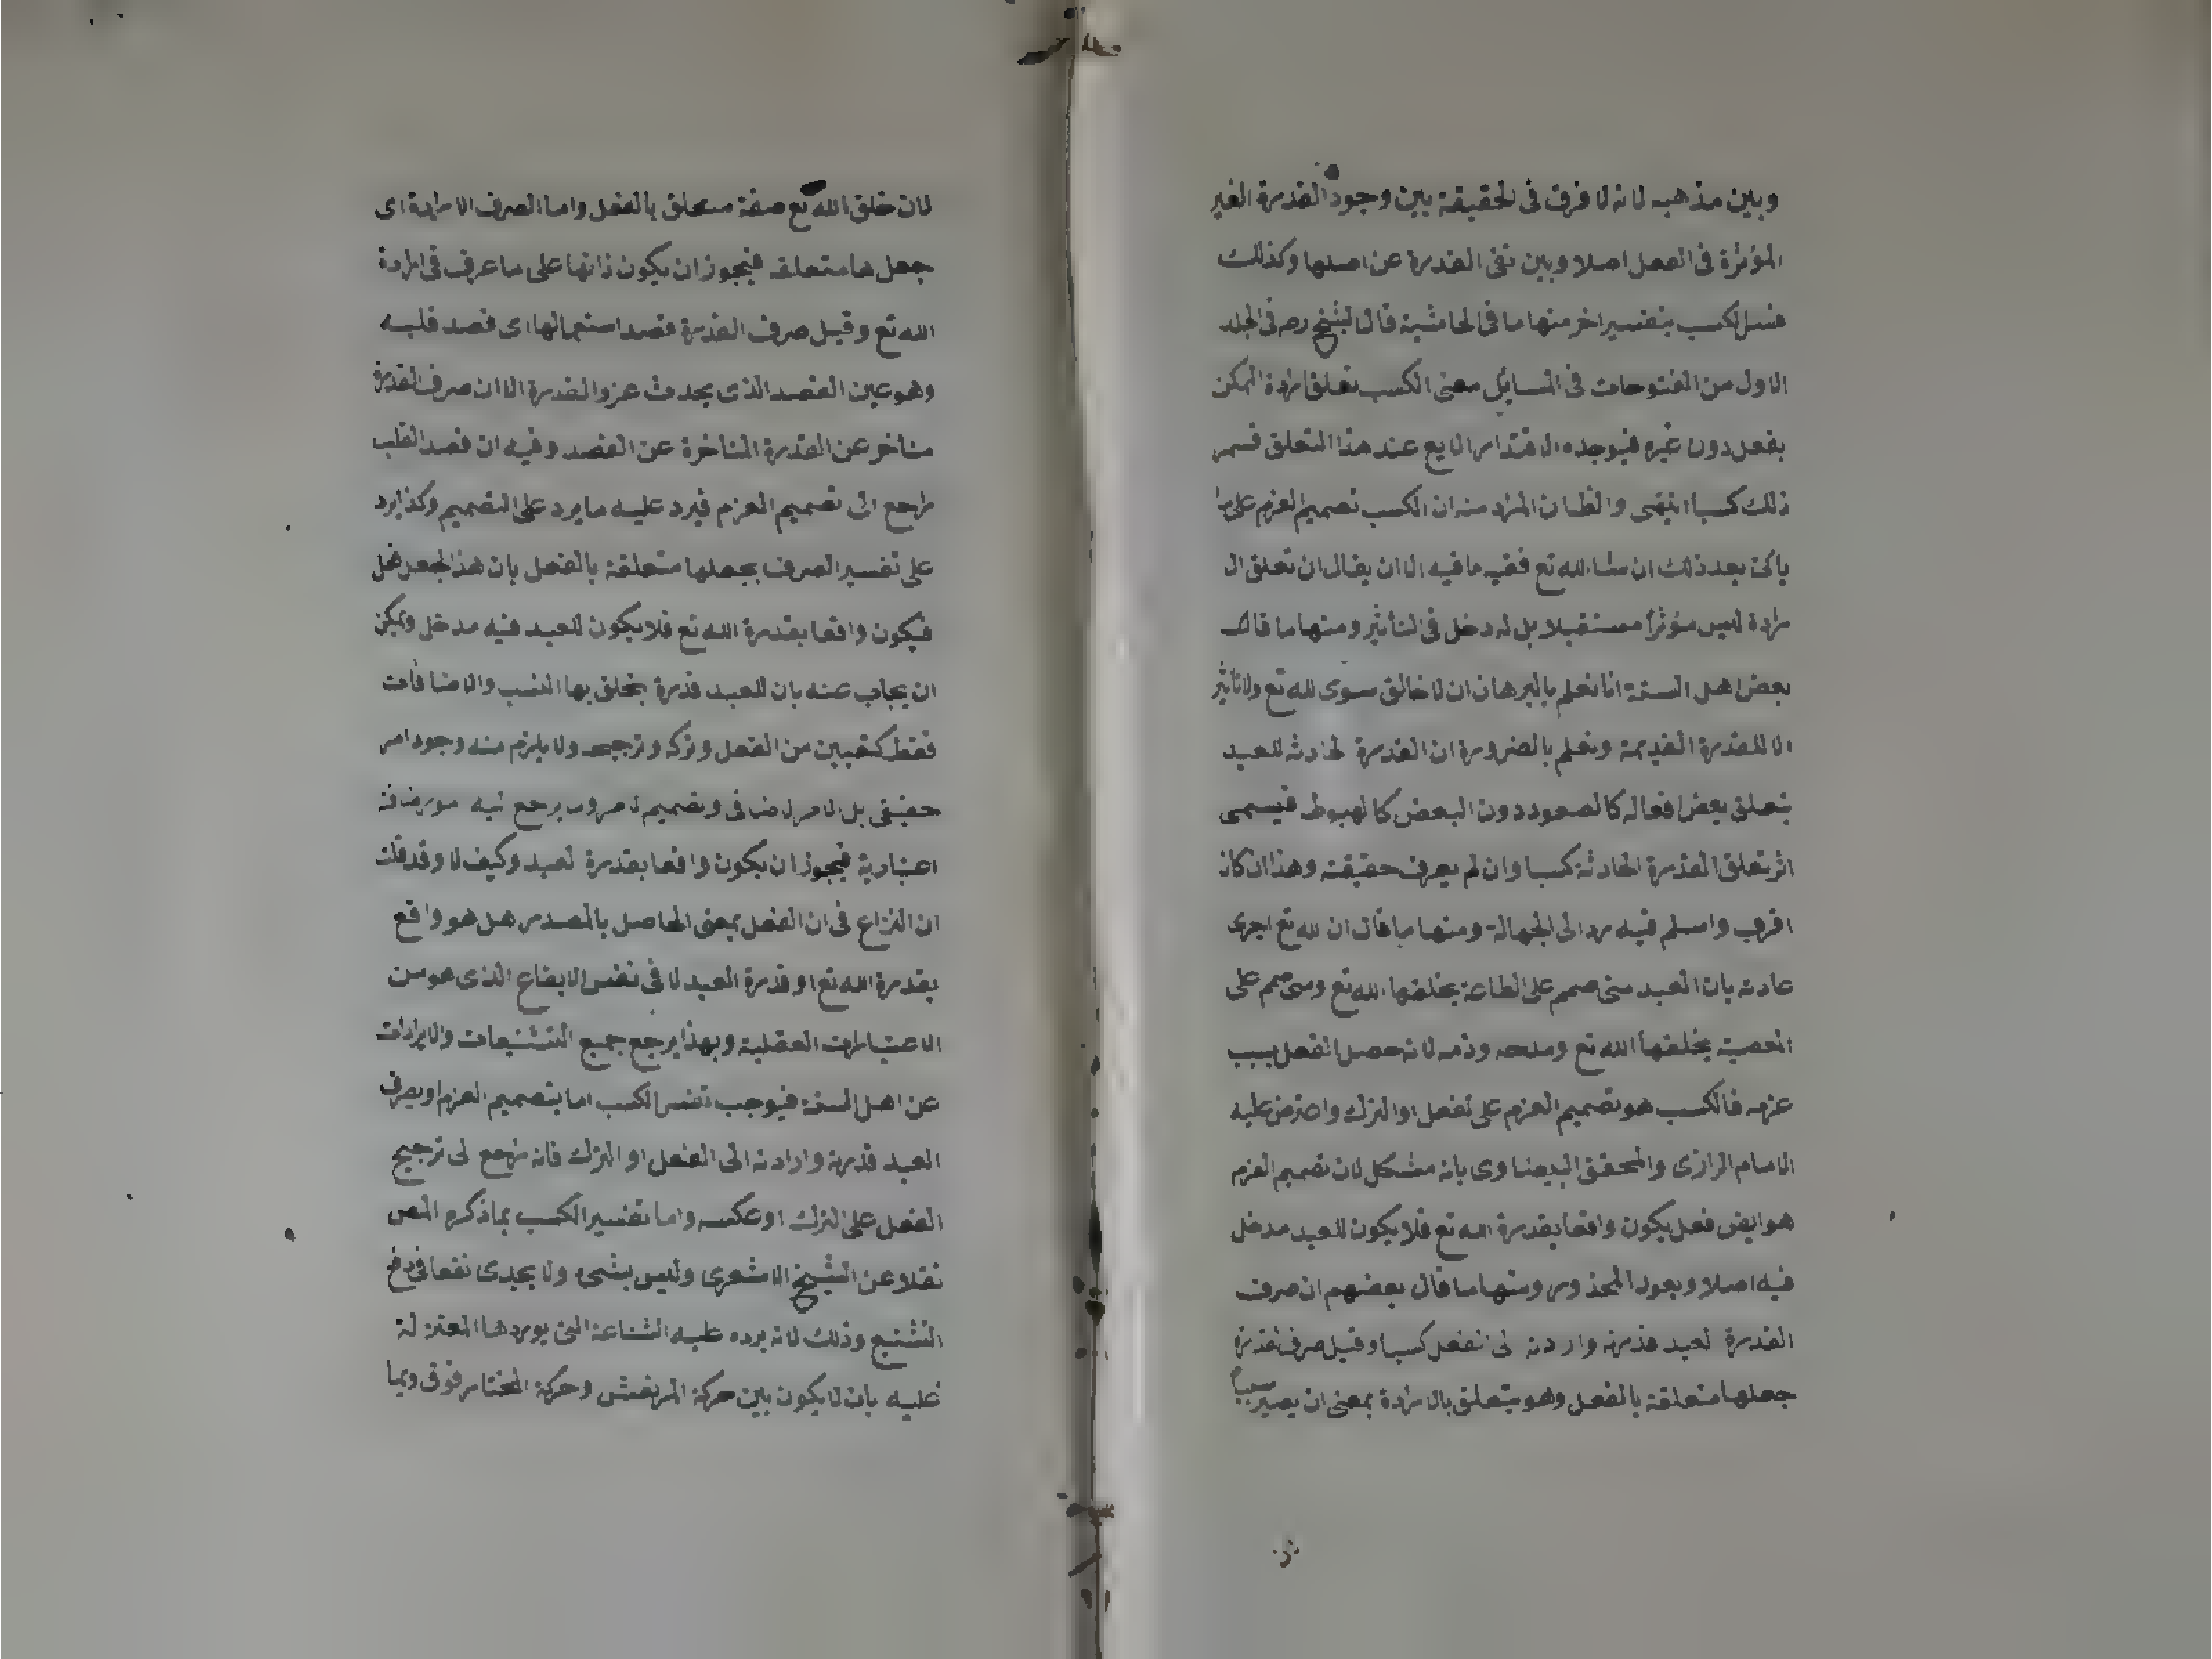 وبين مذهبه لانه لا فرق فى الحقيقة بين وجود القدرة الغير
المؤثرة فى الفعل اصلا وبين نفى القدرة عن اصلها وكذلك
الكسب بتفسير اخر منها ما فى الحاشية قال الشيخ رحم فى الجلد
الاول من الفتوحات فى المسائل معنى الكسب تعلق ارادة الممكن
بفعل دون غيره فيوجده الاقتدار الالهى عند هذا التعلق فسمى
ذلك كسبا انتهى والظ ان المراد منه ان الكسب تصميم العزم على ما
ياتى بعد ذلك ان شا الله تع ففيه ما فيه الا ان يقال ان تعلق الا
رادة ليس مؤثرا مستقبلا بل له دخل فى التأثير ومنها ما قال
بعض اهل السنة انا نعلم بالبرهان ان لا خالق سوى الله تع ولا تاثير
الا للقدرة القديمة ونعلم بالضرورة ان القدرة الحادثه للعبد
يتعلق بعض افعاله كالصعود دون البعض كالهبوط فيسمى
اثر تعلق القدرة الحادثة كسبا وان لم يعرف حقيقته وهذا ان كان
اقرب واسلم فيه رد الى الجهالة ومنها ما قال ان الله تع اجرى
عادته بان العبد متى صمم على الطاعة يخلقها الله تع ومتى صمم على
المعصية يخلقها الله تع ومدحه وذمه لانه حصل الفعل بسبب
عزمه فالكسب هو تصميم العزم على الفعل او الترك واعترض عليه
الامام الرازى والمحقق البيضاوى بانه مشكل لان تصميم العزم
هو ايض فعل يكون واقعا بقدرة الله تع فلا يكون للعبد مدخل
فيه اصلا ويعود المحذور ومنها ما قال بعضهم ان صرف
القدرة العبد قدرته وارادته الى الفعل كسبا وقيل صرف القدرة
جعلها متعلقة بالفعل وهو يتعلق بالارادة بمعنى ان يصير سببا
لان خلق الله تع صفة متعلق بالفعل واما الصرف الارادة اى
جعلها متعلقه فيجوز ان يكون ذاتها على ما عرف فى ارادة
الله تع وقيل صرف القدرة قصد استعمالها اى قصد قلبه
وهو عين القصد الذى يحدث عز والقدرة الا ان صرف القدرة
متاخر عن القدرة المتاخرة عن القصد وفيه ان قصد القلب
راجع الى تصميم العزم فيرد عليه ما يرد على التصميم وكذا يرد
على تفسير الصرف بجعلها متعلقة بالفعل بان هذا الجعل فعل
فيكون واقعا بقدرة الله تع فلا يكون للعبد فيه مدخل ويمكن
ان يجاب عنه بان للعبد قدرة يخلق بها النسب والاضافات
فقط كتعيين من الفعل وتركه وترجيحه ولا يلزم منه وجود امر
حقيقى بل الامر الاضافى وتصميم يرجع اليه
اعتبارية فيجوز ان يكون واقعا بقدرة العبد وكيف لا وقد قلت
ان النزاع فى ان الفعل بمعنى الحاصل بالمصدر هل هو واقع
بقدرة الله تع او قدرة العبد لا فى نفس الايقاع الذى هو من
الاعتبارات العقلية وبهذا يرجع جميع التشنيعات والايرادات
عن اهل السنة فيوجب تفسر الكسب اما بتصميم العزم او بصرف
العبد قدرته وارادته الى الفعل او الترك فانه راجع الى ترجيح
الفعل على الترك او عكسه واما تفسير الكسب بما ذكره المص
نقلا عن الشيخ الاشعرى وليس بشىء ولا يجدى نفعا فى دفع
التشنيع وذلك لانه يرده عليه الشناعة التى يوردها المعتزلة
عليه بان لا يكون بين حركة المرتعش وحركة المختار فرق وبما